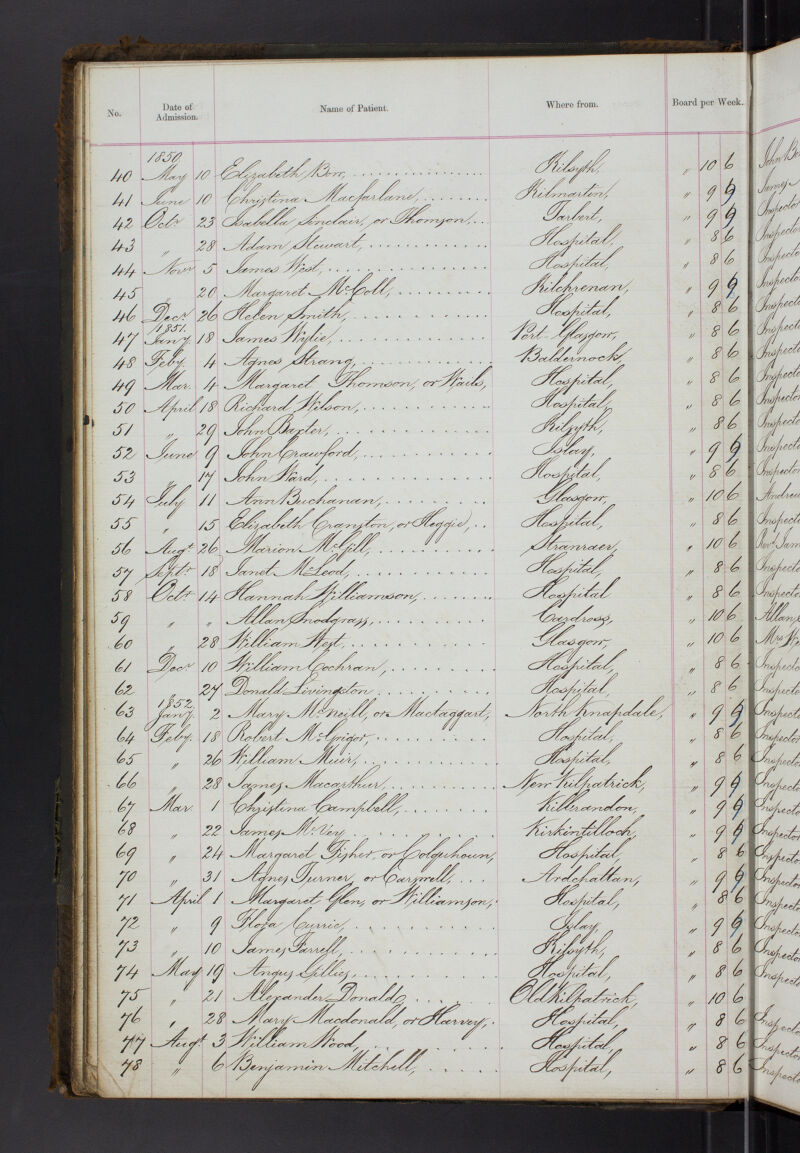 No. Date of Admission. Name of Patient. Where from. Board per Week.
1850
40 May 10 Elizabeth Bow, Kilsyth, " 10 6
41 June 10 Christina Macfarlane, Kilmarton, " 9 9
42 Octr 23 Isabella Sinclair, or Thomson, Tarbert, " 9 9
43 " 28 Adam Stewart, Hospital, " 8 6
44 Novr 5 James West, Hospital, " 8 6
45 20 Margaret McColl, Kilchrenan, " 9 9
46 Decr 26 Helen Smith, Hospital, " 8 6
1851.
47 Jany 18 James Wylie, Port-Glasgow, " 8 6
48 Feby. 4 Agnes Strang, Baldernock, " 8 6
49 Mar. 4 Margaret Thomson, or Hospital, " 8 6
50 April 18 Richard Wilson, Hospital, " 8 6
51 " 29 John Baxter, Kilsyth, " 8 6
52 June 9 John Crawford, Islay, " 9 9
53 17 John Ward, Hospital, " 8 6
54 July 11 Ann Buchanan, Glasgow, " 10 6
55 " 15 Elizabeth Cranston, or Heggie, Hospital, " 8 6
56 Augt 26 Marion McGill, Stranraer, " 10 6
57 Septr 18 Janet McLeod, Hospital, " 8 6
58 Octr 14 Hannah Williamson, Hospital " 8 6
59 " " Allan Snodgrass, Cardross, " 10 6
60 " 28 William West, Glasgow, " 10 6
61 Decr 10 William Cochran, Hospital, " 8 6
62 27 Donald Livingston Hospital, " 8 6
1852.
63 Jany. 2 Mary McNeill, or Mactaggart, North Knapdale, " 9 9
64 Feby. 18 Robert McGrigor, Hospital, " 8 6
65 " 26 William Muir, Hospital, " 8 6
66 " 28 James Macarthur, New Kilpatrick, " 9 9
67 Mar. 1 Christina Campbell, Killbrandon, " 9 9
68 " 22 James McVey Kirkintilloch, " 9 9
69 " 24 Margaret Fisher, or Colquhoun, Hospital, " 8 6
70 " 31 Agnes Turner, or Carswell, Ardchattan, " 9 9
71 April 1 Margaret Glen, or Williamson, Hospital, " 8 6
72 " 9 Flora Currie, Islay, " 9 9
73 " 10 James Farrell, Kilsyth, " 8 6
74 May 19 Angus Gillies, Hospital, " 8 6
75 " 21 Alexander Donald, Old Kilpatrick, " 10 6
76 " 28 Mary Macdonald, or Harvey, Hospital, " 8 6
77 Augt 3 William Wood, Hospital, " 8 6
78 " 6 Benjamin Mitchell, Hospital, " 8 6